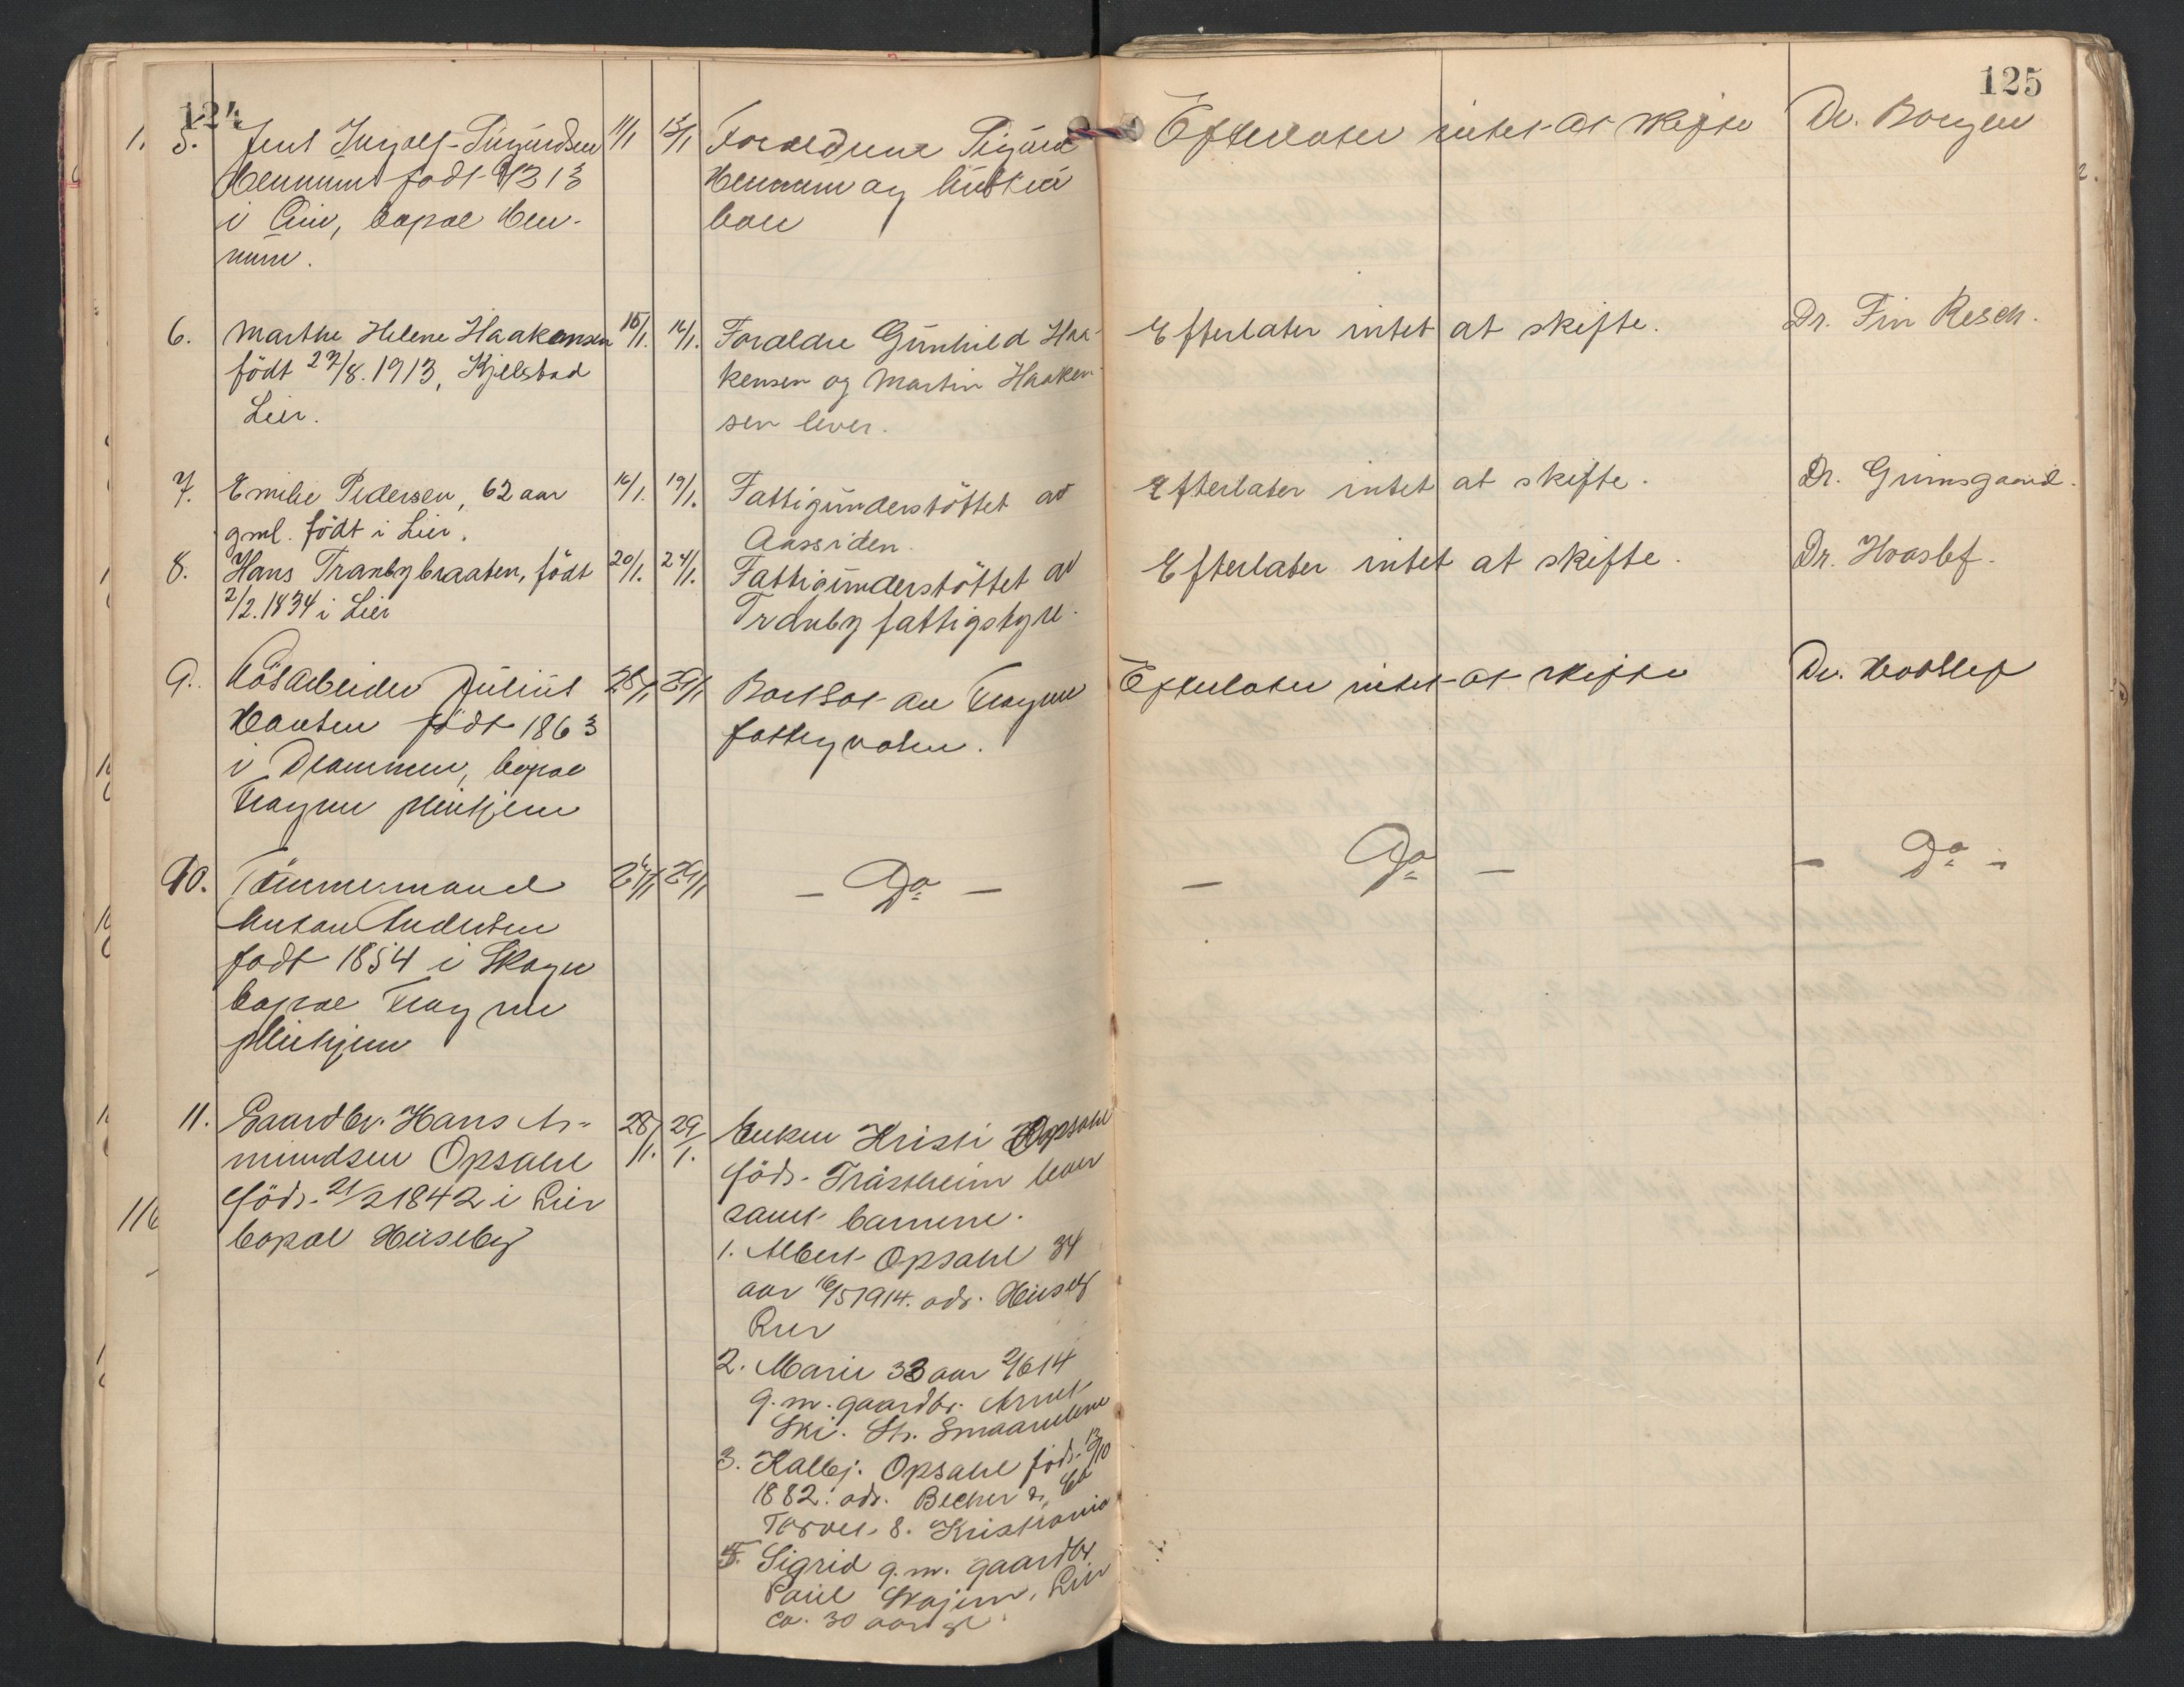 124
125
5. Jens Ingolf Sigurdsen 11/1 13/1 Forældrene Sigurd Efterlater intet at skifte Dr. Borgen
Hennum født 9/3 13 Hennum og hustru
i Lier, bopæl Hen-
num.
6. Marthe Helene Haakensen 15/1. 16/1. Foræeldre Gunhild Haa- Efterlater intet at skifte. Dr. Fin Resch.
født 27/8. 1913, Kjelstad kensen og Martin Haaken-
Lier. sen lever.
7. Emilie Pedersen, 62 aar 16/1. 19/1. Fattigunderstøttet av Efterlater intet at skifte. Dr. Grimsgaard.
gml. født i Lier. Aassiden.
8. Hans Tranbybraaten, født 20/1. 24/1. Fattigunderstøttet av Efterlater intet at skifte. Dr. Hvoslef.
2/2. 1834 i Lier Tranby fattigstyre.
9. Løsarbeider Julius 28/1 29/1 Bortsat av Frogner Efterlater intet at skifte Dr. Hvoslef
Hansen født 1863 fattigvæsen.
i Drammen, bopæl
Frogner pleiehjem
10. Tømmermand 29/1 — Do — — Do — — Do —
Anton Andersen
født 1854 i Skoger
bopæl Frogner
pleiehjem
11. Gaardbr. Hans As- 28/1. 29/1. Enken Kristi Opsahl
mundsen Opsahl fød. lever
fød. 21/2 1842 i Lier samt barnene.
bopæl Huseby 1. Albert Opsahl 34
aar 16/5 1914. adr. Huseby
Lier
2. Marie 33 aar 2/6 14
g. m. gaardbr.
Ski. St. Smaalenene
3. Kalbj. Opsahl fød. 13/10
1882. adr. Becher & Co
Torvet 8. Kristiania
Sigrid g. m. gaardbr
Paul Lier
ca. 30 aar gl.